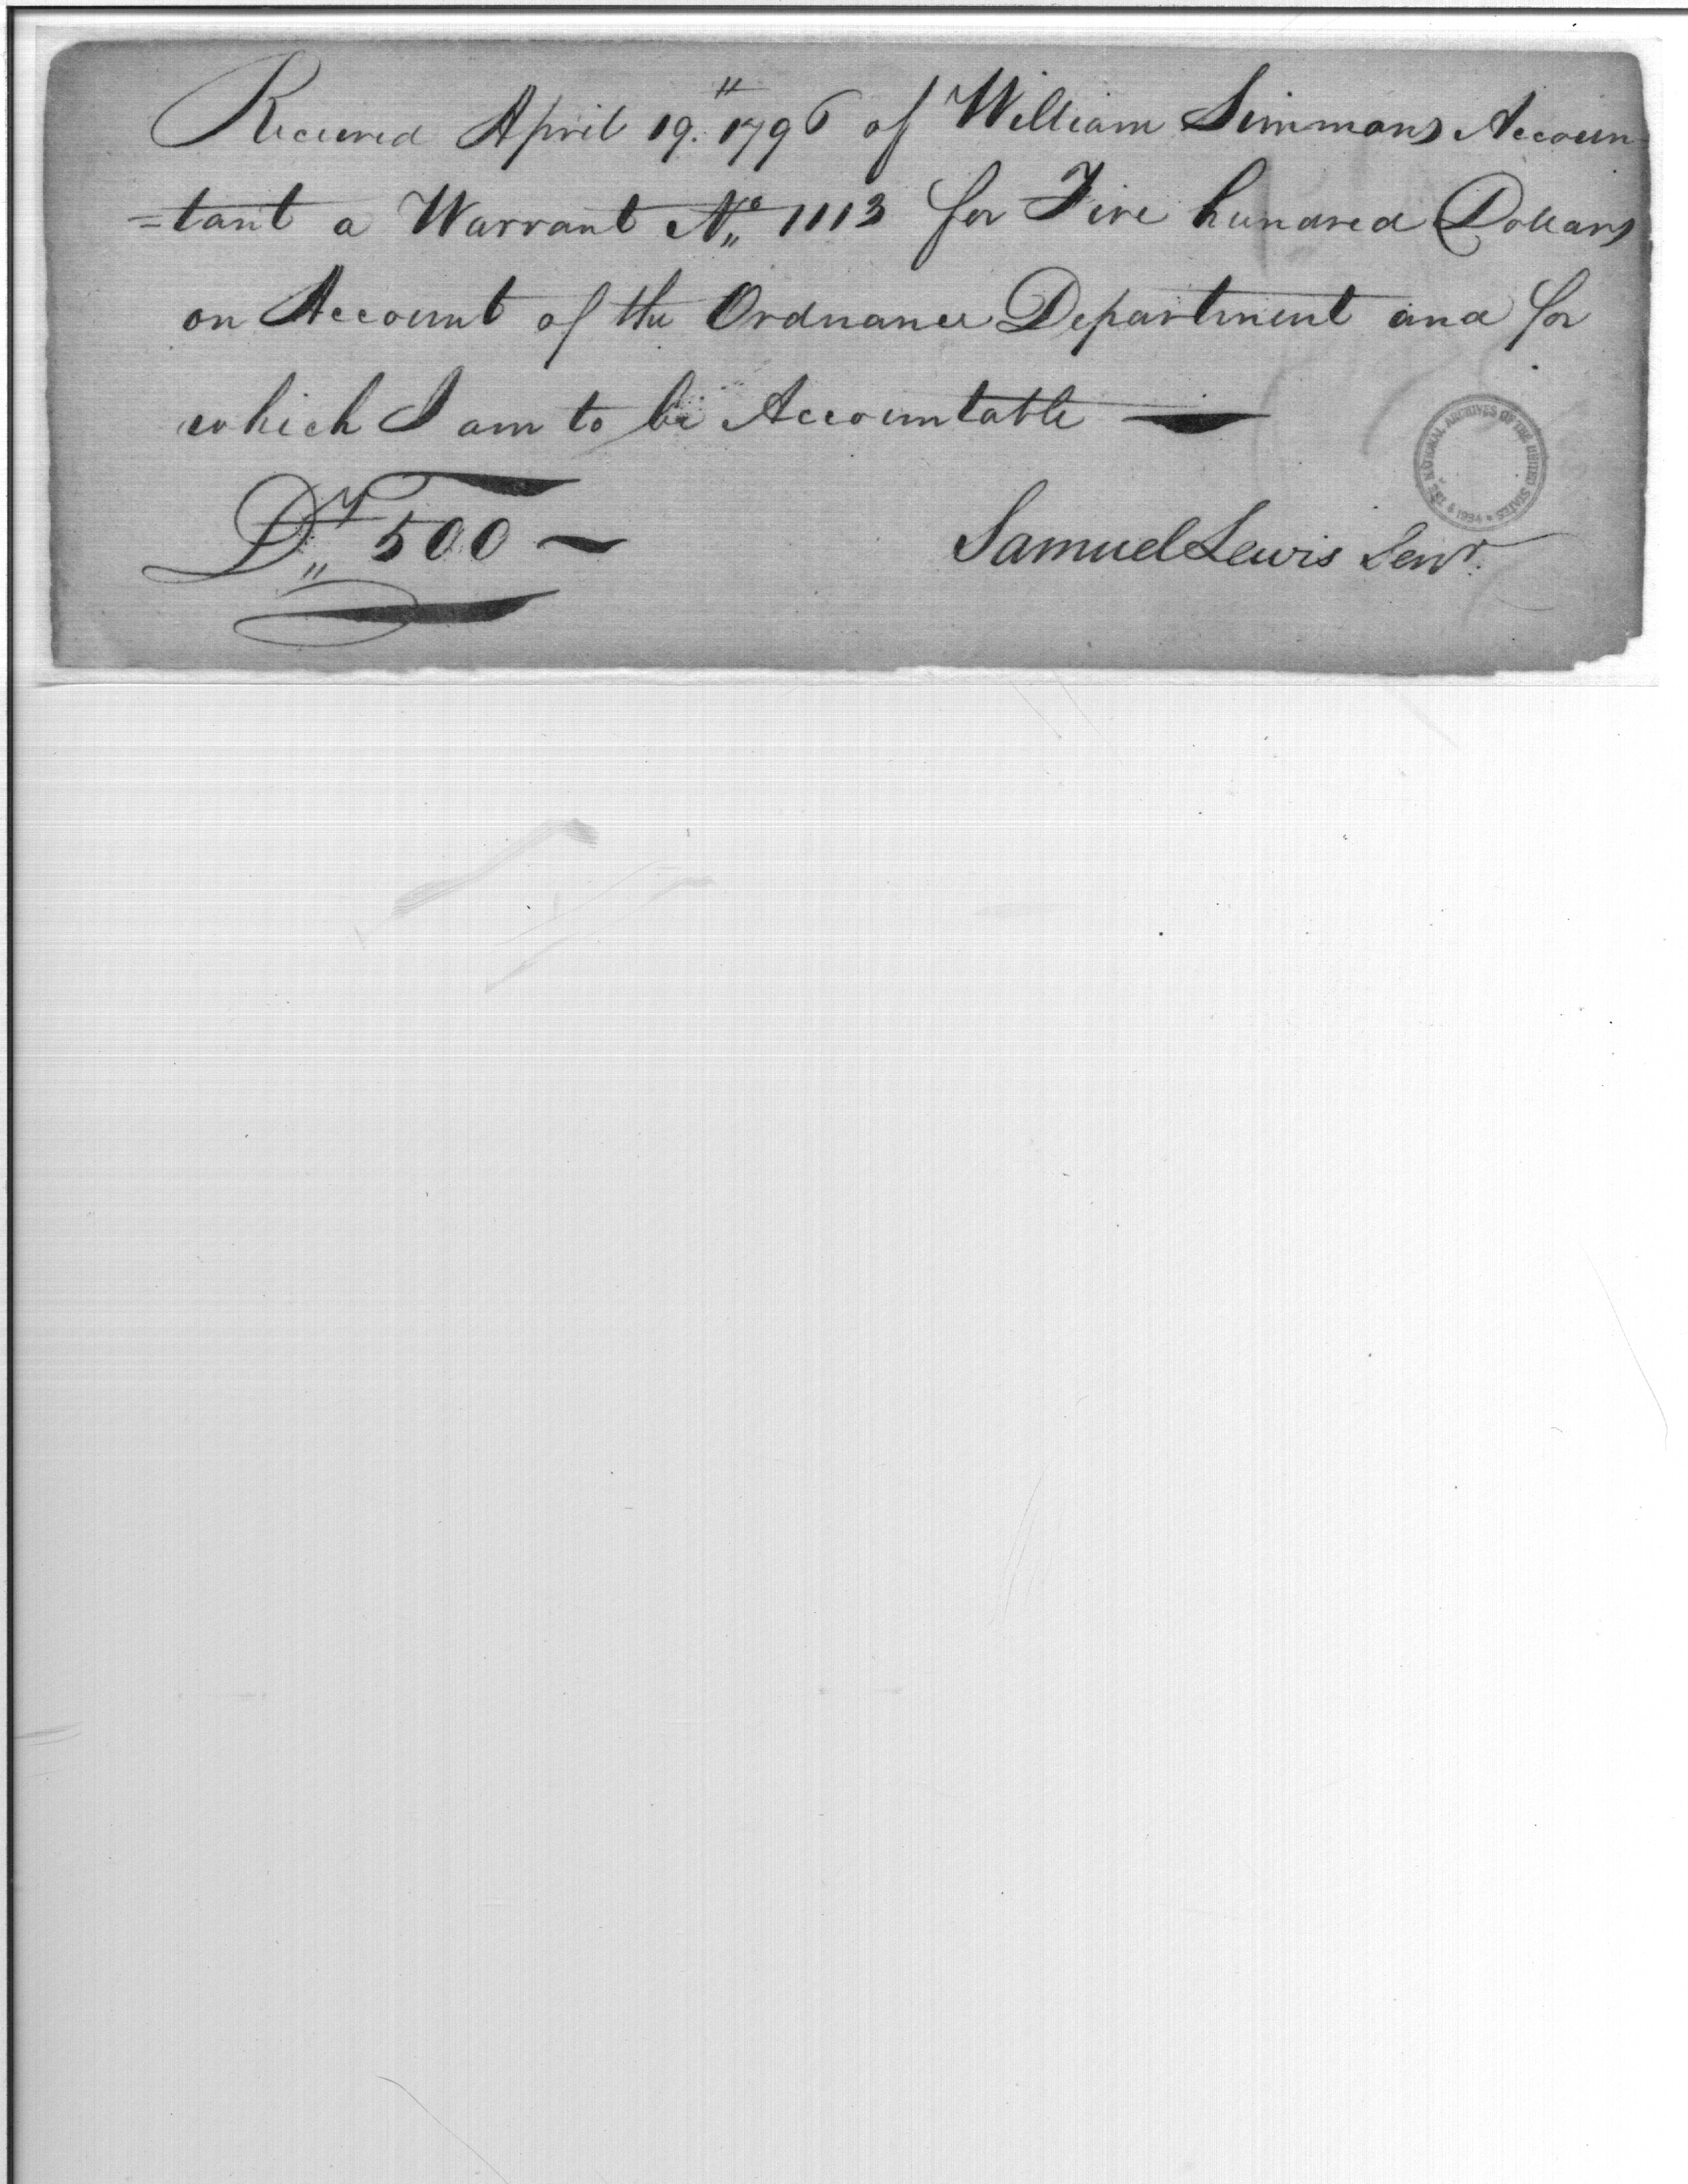 Received April 19th 1796 of William Simmons Accoun
=tant a Warrant No 1113 for Five hundred Dollars
on Account of the Ordnance Department and for
which I am to be Accountable —
THE NATIONAL ARCHIVES OF THE UNITED STATES
* 1934 *
Ds 500 ~
Samuel Lewis Senr.